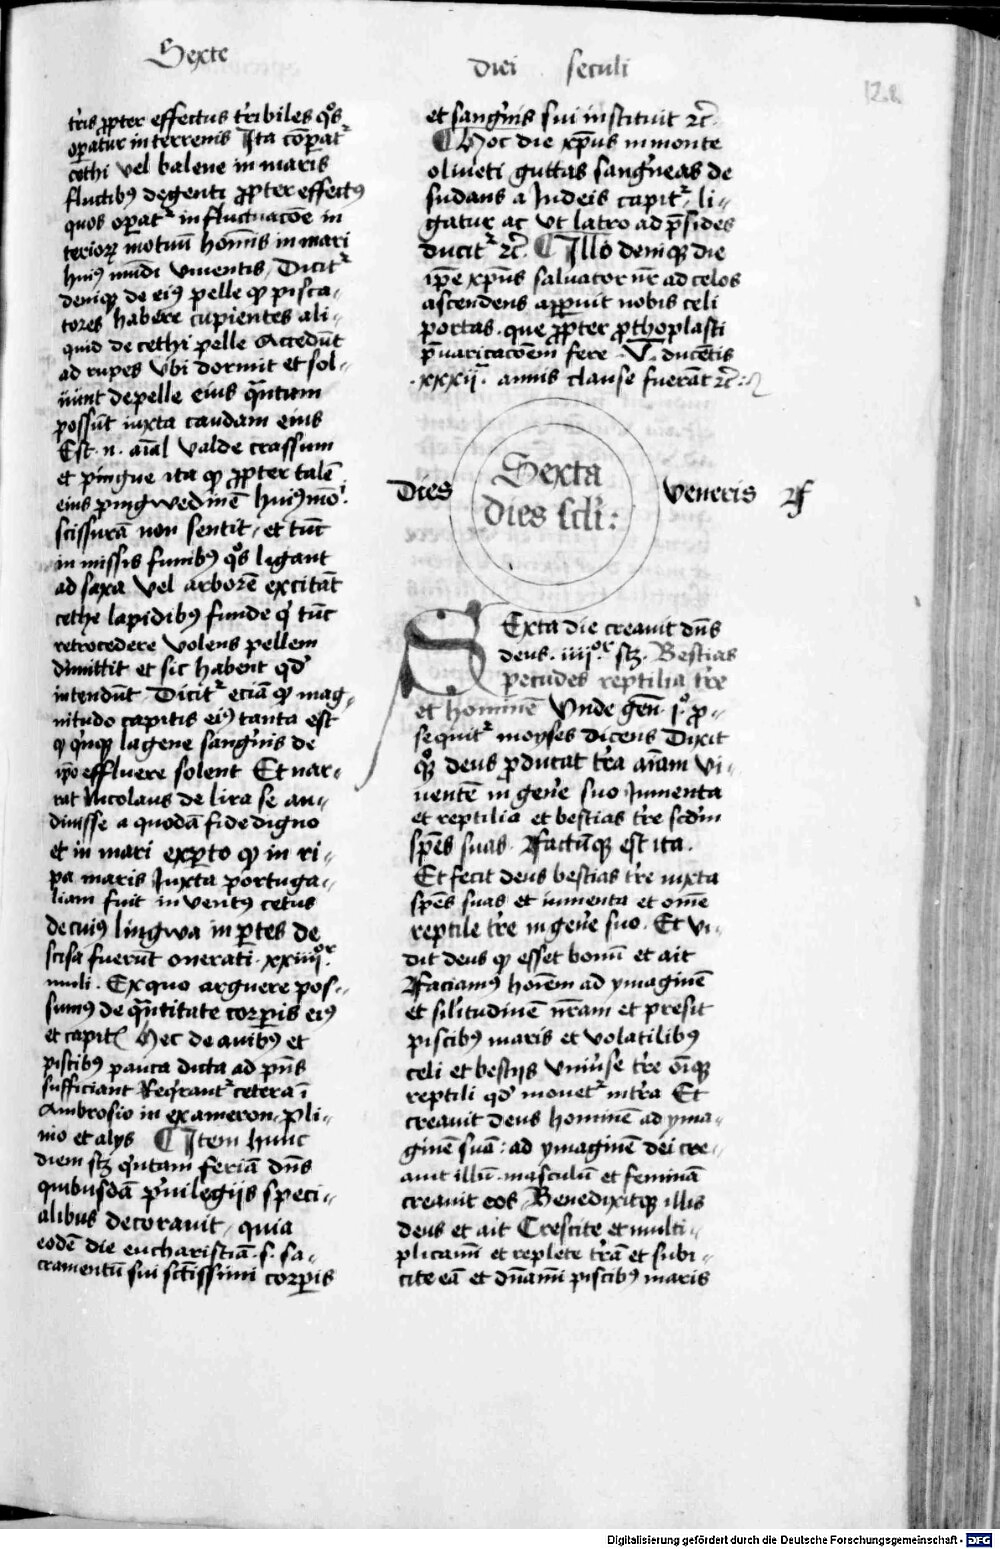 Sexte diei seculi
12.
tr̄is ꝓpter effectus tr̄ibiles qͦs
oꝑatur in terrenis Ita cōꝑatᷣ
cethi vel balene in maris
fluctibꝰ degenti ꝓpter effectꝰ
quos oꝑatᷣ in fluctuacōe in
terioꝝ motuū homīs in mari
huiꝰ mūdi viuentis, Dicitᷣ
deniqꝫ de eiꝰ pelle ꝙ pisca-
tores habere cupientes ali-
quid de cethi pelle Accedūt
ad rupes vbi dormit et sol-
uunt de pelle eius qᷓntum
possūt iuxta caudam eius
Est .n. aīal valde crassum
et pingue ita ꝙ ꝓpter talē
eiꝰ pingwedinē huiꝰmōi
scissurā non sentit, et tūc
in missis funibꝰ qͦs ligant
ad saxa vel arborē excitāt
cethe lapidibꝰ funde qͥ tūc
retrocedere volens pellem
dimittit et sic habent qd̄
intendūt Dicitᷣ eciā ꝙ mag-
nitudo capitis eiꝰ tanta est
ꝙ qͥnqꝫ lagene sangͥnis de
ip̄o effluere solent Et nar-
rat Nicolaus de lira se au-
diuisse a quodā fide digno
et in mari exꝑto ꝙ in ri-
pa maris Iuxta portuga-
liam fuit inventꝰ cetus
de cuiꝰ lingwa in ꝑtes de
scisa fuerūt onerati .xxiiiiͦʳ.
muli . Ex quo arguere pos-
sumꝰ de qᷓntitate corꝑis eiꝰ
et capitꝭ Hec de auibꝰ et
piscibꝰ pauca dicta ad p̄ns
sufficiant Reqͥrantᷣ cetera ī
Ambrosio in exameron, pli-
nio et alys ¶ Item hunc
diem sꝫ qͥntam feriā dn̄s
quibusdā pͥuilegijs speci-
alibus decorauit, quia
eodē die eucharistiā .s. sa-
cramentū sui sct̄issimi corꝑis
et sangͥnis sui instituit ⁊c̄.
¶ Hoc die xp̄us in monte
oliueti guttas sangͥneas de
sudans a Iudeis capitᷣ, li-
gatur ac vt latro ad p̄sides
ducitᷣ ⁊c̄. ¶ Illo deniqꝫ die
ip̄e xp̄us saluator nr̄ ad celos
ascendens aꝑuit nobis celi
portas . que ꝓpter ꝓthoplasti
p̄uaricacōem fere .V. ducētis
.xxxij. annis clause fuerāt ⁊c̄ :
Dies Sexta veneris ♃
dies scl̄i :
Sexta die creauit dn̄s
deus .iiiiͦʳ. sꝫ . Bestias
pecudes reptilia tr̄e
et hominē Vnde gen̄ .jͦ. ꝓ-
sequitᷣ moyses dicens Dixit
qͦꝫ deus ꝓducat tr̄a aīam vi-
uentē in gen̄e suo Iumenta
et reptilia et bestias tr̄e scd̄m
spēs suas . Factūqꝫ est ita .
Et fecit deus bestias tr̄e iuxta
spēs suas et iumenta et om̄e
reptile tr̄e in gen̄e suo . Et vi-
dit deus ꝙ esset bonū et ait
Faciamꝰ hoīem ad ymaginē
et sil̄itudinē nr̄am et presit
piscibꝰ maris et volatilibꝰ
celi et bestijs vniūse tr̄e oīqꝫ
reptili qd̄ mouetᷣ in tr̄a Et
creauit deus hominē ad yma-
ginē suā : ad ymaginē dei cre-
auit illū . masculū et feminā
creauit eos , Benedixitqꝫ illis
deus et ait Crescite et multi-
plicamī et replete tr̄ā et subi-
cite eā et dn̄amī piscibꝰ maris
Digitalisierung gefördert durch die Deutsche Forschungsgemeinschaft - DFG